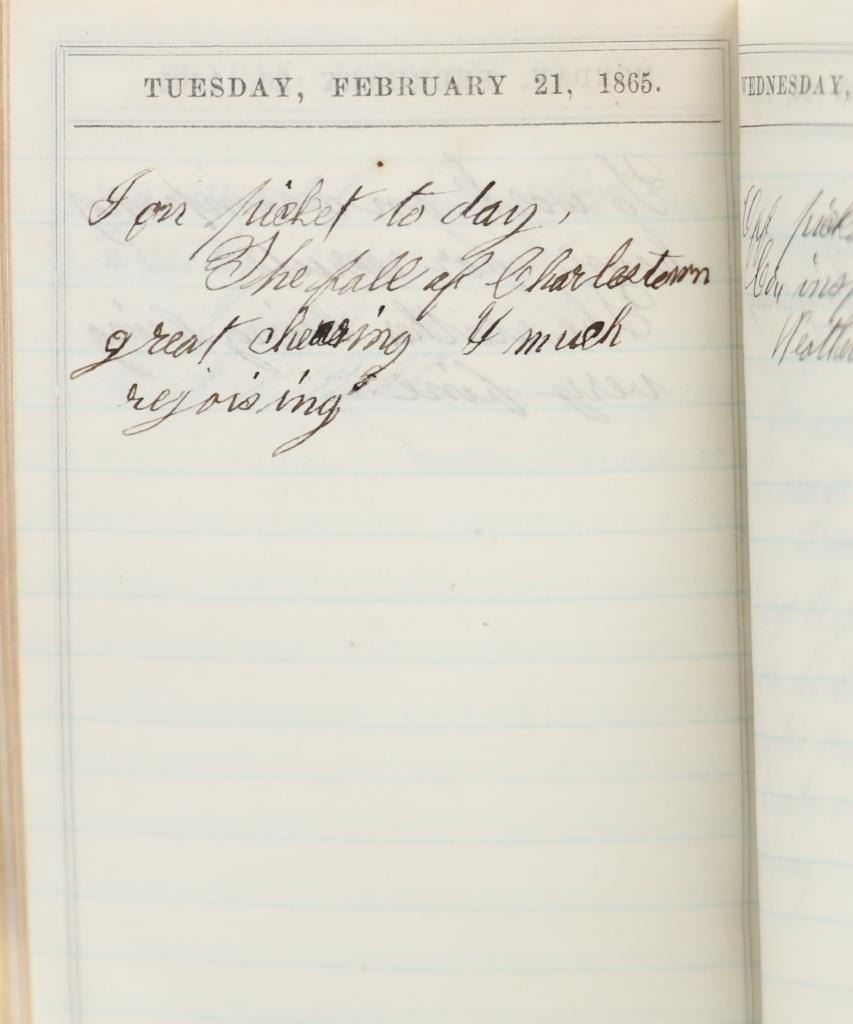 TUESDAY, FEBRUARY 21, 1865.
I on picket to day,
The fall of Charlestown
great cheering & much
rejoising
WEDNESDAY,
Off pick
Co, insp
Weather